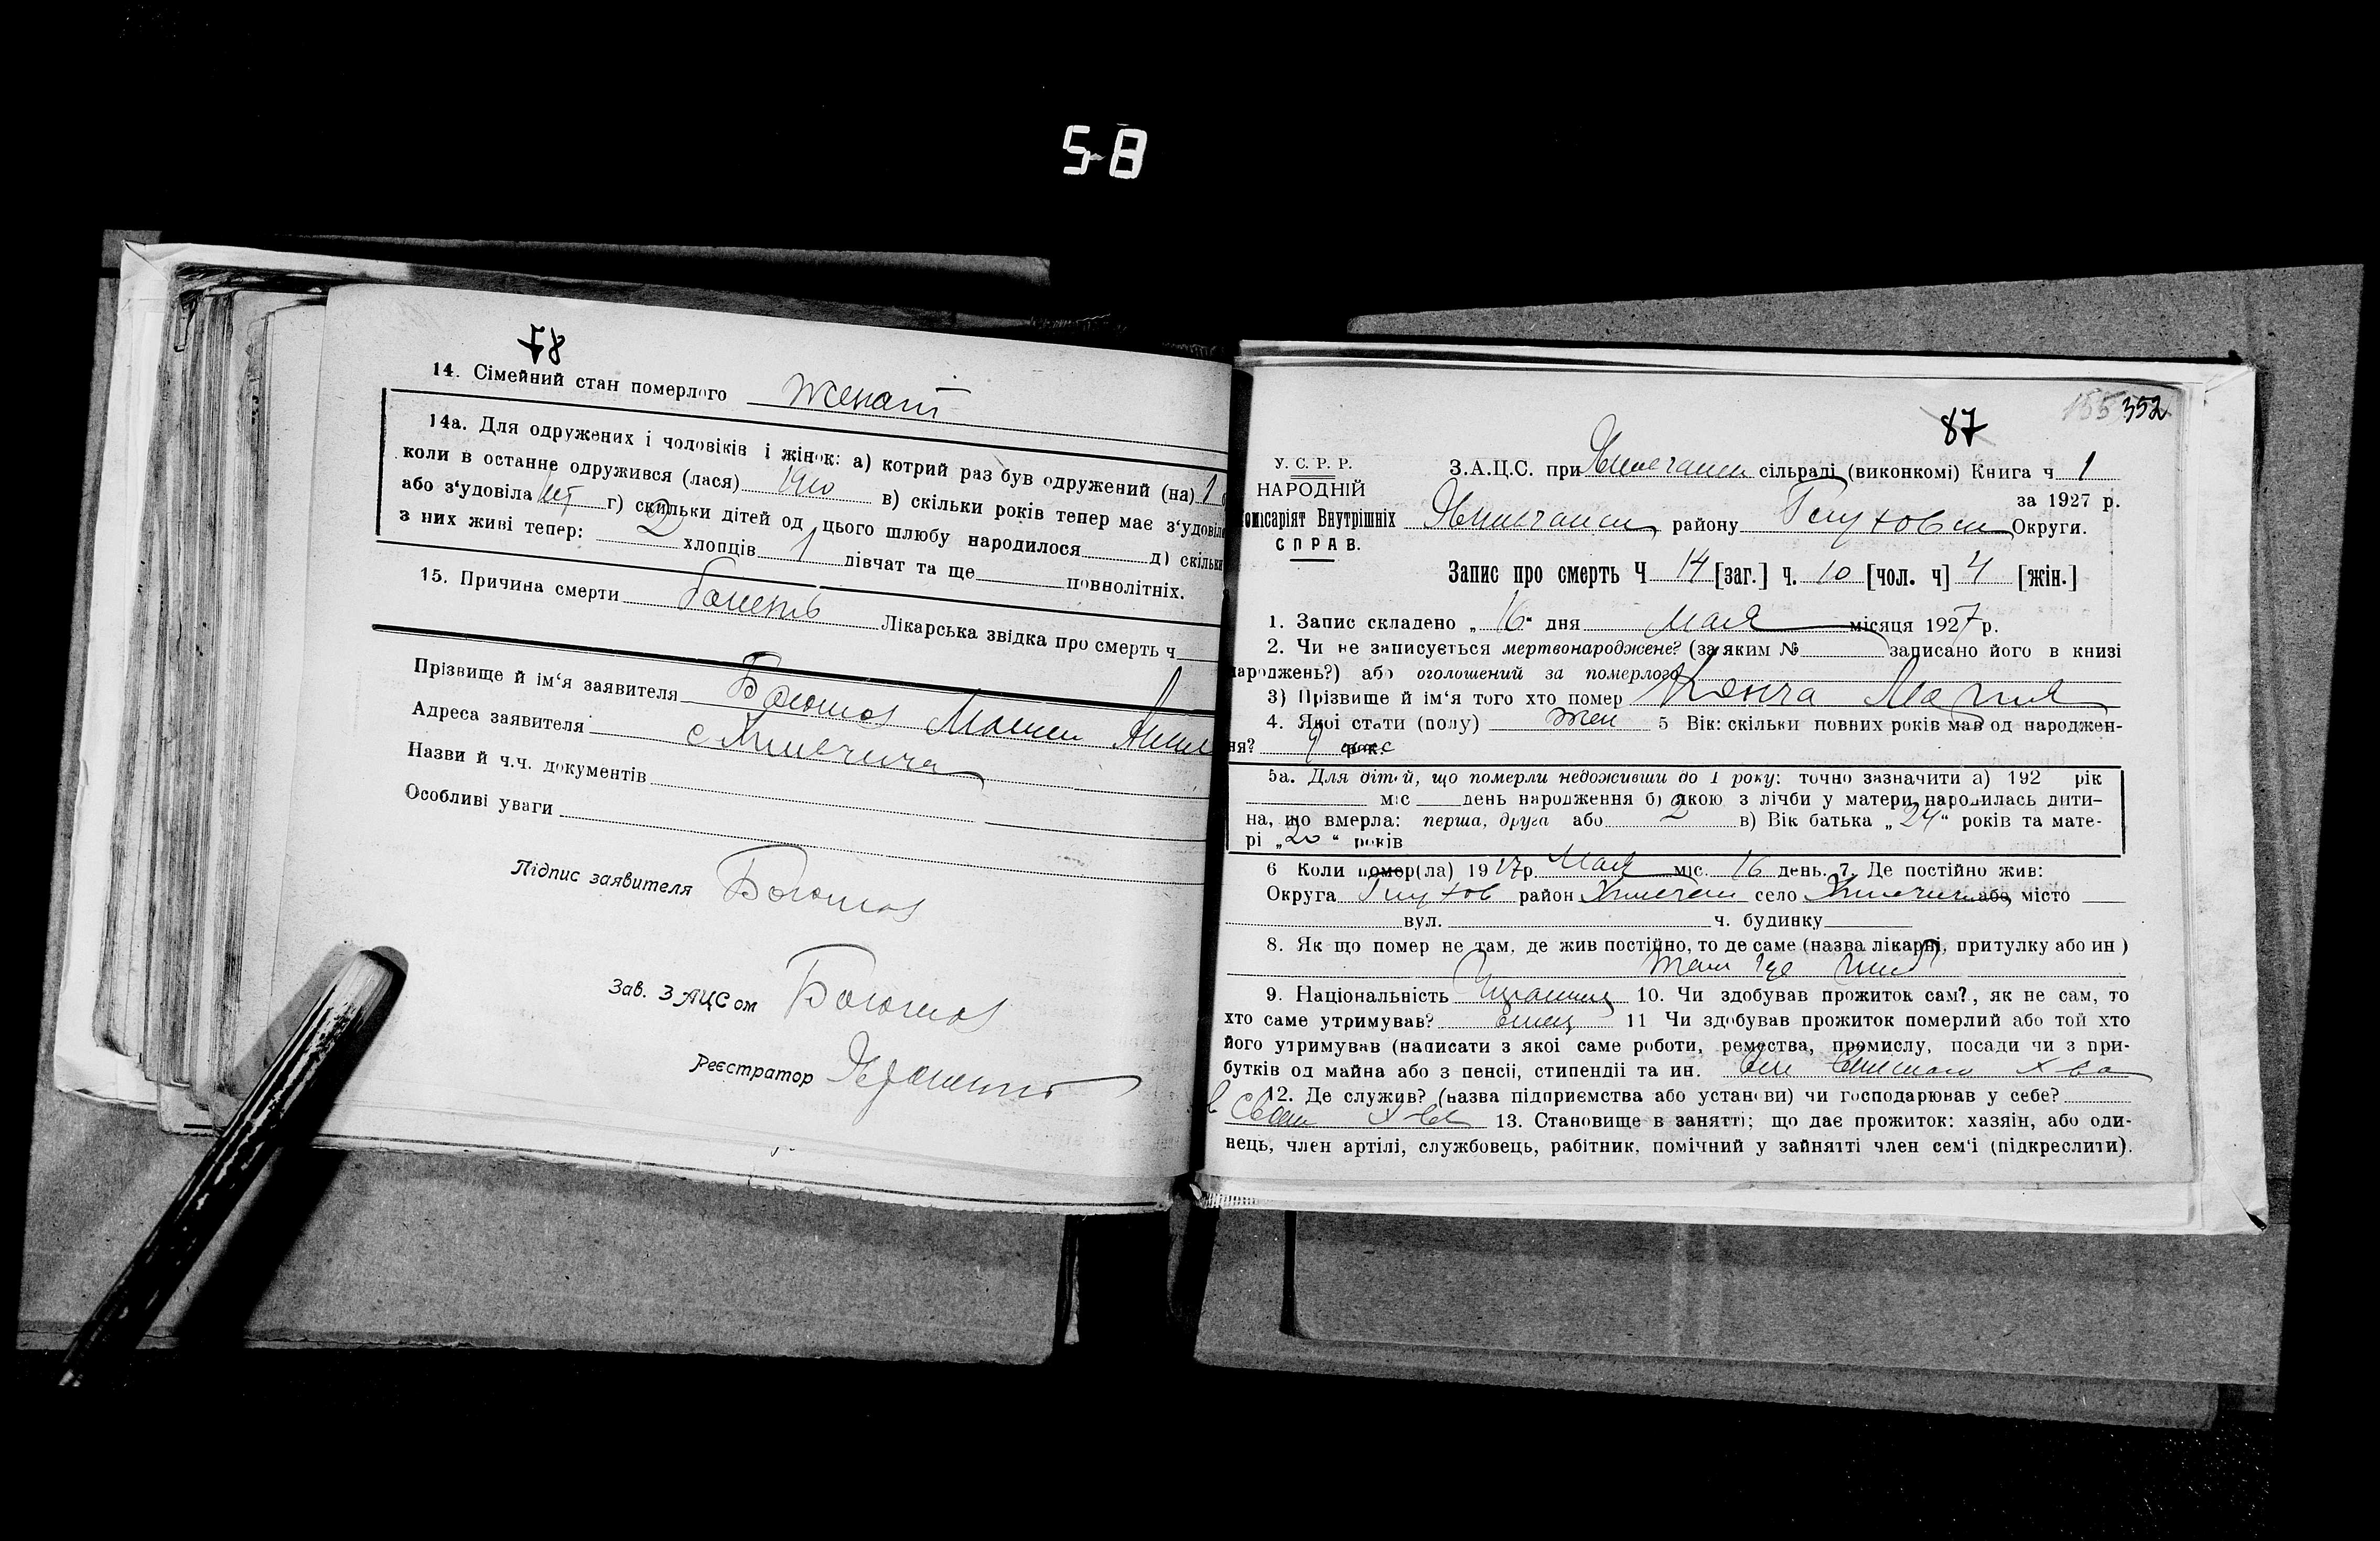 58
78
14. Сімейний стан померлого Женат
14а. Для одружених і чоловіків і жінок: а) котрий раз був одружений (на) 1
коли в останнє одружився (лася) 1910 в) скільки років тепер має з'удовіл
або з'удовіла г) скільки дітей од цього шлюбу народилося д) скільки
з них живі тепер: 2 хлопців 1 дівчат та ще повнолітніх.
15. Причина смерти Лікарська звідка про смерть ч
Прізвище й ім'я заявителя
Адреса заявителя с
Назви й ч.ч. документів
Особливі уваги
Підпис заявителя
Зав. ЗАЦСом
Реєстратор
155 352
87
У. С. Р. Р.
НАРОДНІЙ
комісаріят Внутрішніх
СПРАВ.
З.А.Ц.С. при сільраді (виконкомі) Книга ч 1
за 1927 р.
району Глуховск Округи.
Запис про смерть Ч 14 [заг.] ч. 10 [чол. ч] 4 [жін.]
1. Запис складено „16“ дня Мая місяця 1927 р.
2. Чи не записується мертвонароджене? (за яким № записано його в книзі
народжень?) або оголошений за померлого
3) Прізвище й ім'я того хто помер Мария
4. Якої стати (полу) жен 5 Вік: скільки повних років мав од народжен-
ня? рок.
5а. Для дітей, що померли недоживши до 1 року: точно зазначити а) 192 рік
міс день народження б) якою з лічби у матери народилась дити-
на, що вмерла: перша, друга або 2 в) Вік батька „24“ років та мате-
рі „20“ років
6 Коли помер(ла) 1927р. Мая міс. 16 день. 7. Де постійно жив:
Округа Глухов район село або місто
вул. ч. будинку
8. Як що помер не там, де жив постійно, то де саме (назва лікарні, притулку або ин)
там где жил
9. Національність 10. Чи здобував прожиток сам?, як не сам, то
хто саме утримував? отец 11 Чи здобував прожиток померлий або той хто
його утримував (написати з якої саме роботи, ремества, промислу, посади чи з при-
бутків од майна або з пенсії, стипендії та ин. х-ва
12. Де служив? (назва підприємства або установи) чи господарював у себе?
в своем х-ве 13. Становище в занятті; що дає прожиток: хазяін, або оди-
нець, член артілі, службовець, рабітник, помічний у зайнятті член сем'ї (підкреслити).